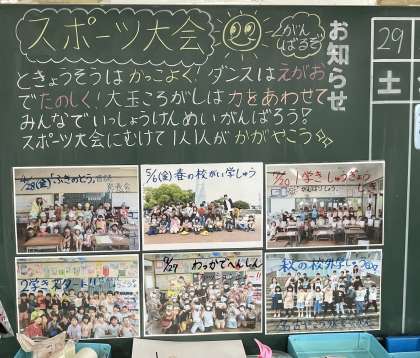 スポーツ大会
がん
ばるぞ
お知らせ
29
土
ときょうそうは かっこよく! ダンスは えがお
で たのしく! 大玉ころがしは 力をあわせて
みんなで いっしょうけんめい がんばろう!
スポーツ大会にむけて 1人1人が かがやこう
4/28(金)「ふきのとう」
発表会
5/6(金)春の校がい学しゅう
7/20 1学き しゅうぎょう
しき
2学きスタート!!
9/27 わっかでへんしん
秋の校外学しゅう